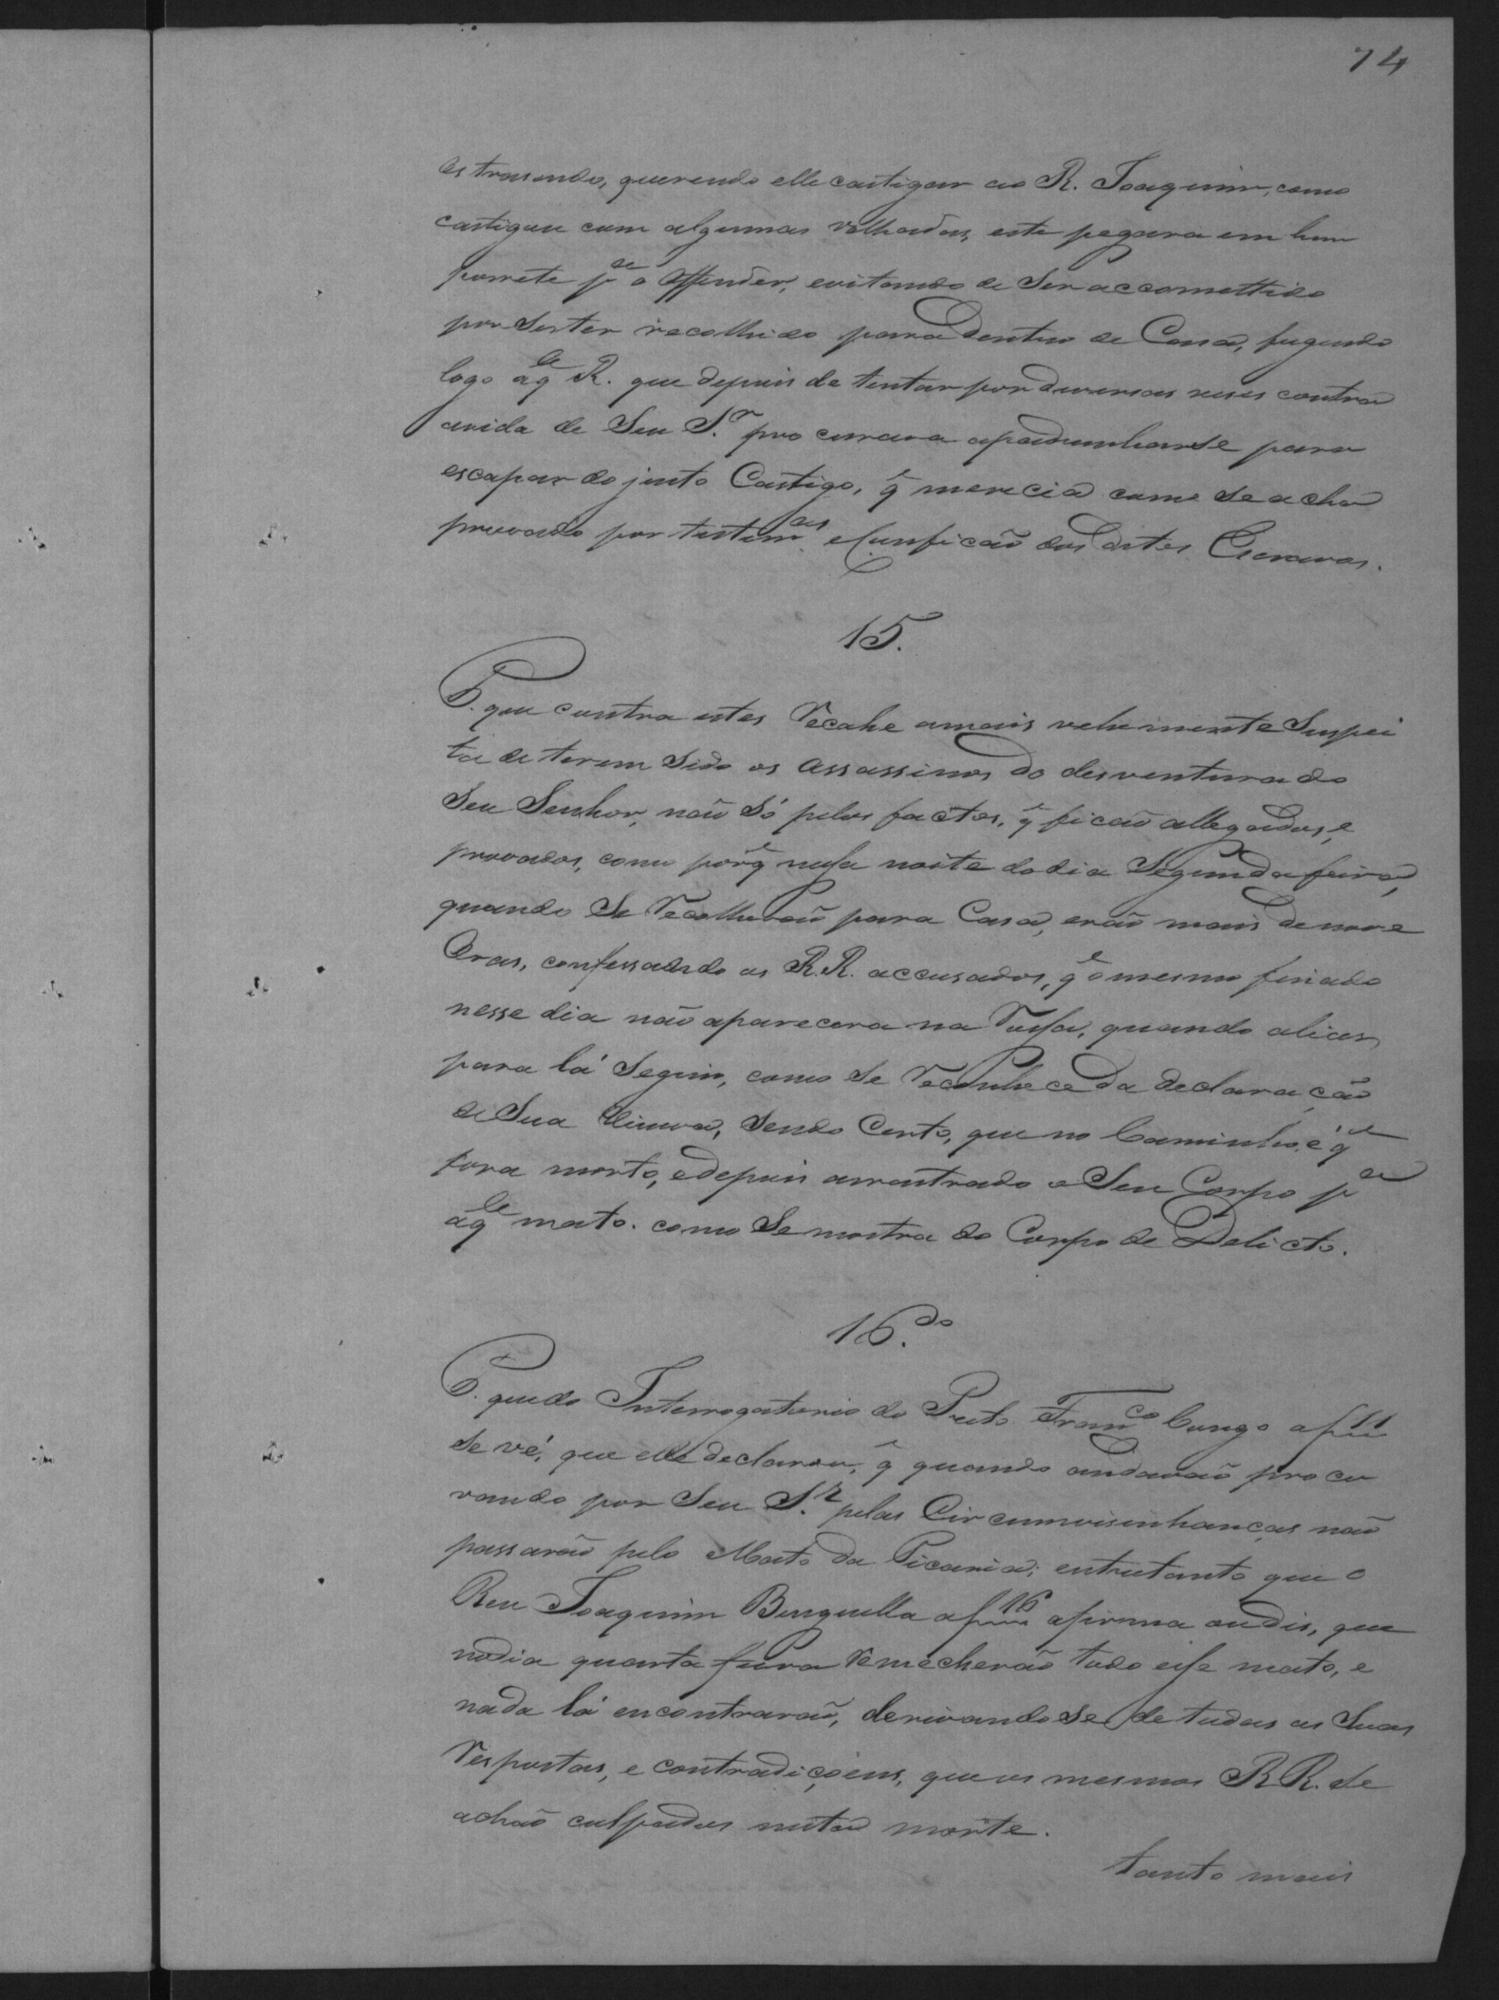 74
os trasendo, querendo elle castigar ao R. Joaquim, como
castigou com algumas relhadas, este pegara em hum
porrete pª o offender, evitando de ser accomettido
por se ter recolhido para dentro de Casa, fugindo
logo aqle R. que depois de tentar por diversas veses contra
avida de Seu S.r procurara apadrinharse para
escapar do justo Castigo, q̃ merecia como se acha
provado por testemas e Confição dos dittos Escravos.
15.
P. que contra estes recahe amais vehemente Suspei
ta de terem sido os assassinos do desventurado
Seu Senhor, não Só pelos factos, q̃ ficão allegados, e
provados, como porq̃ nessa noite do dia Segunda feira,
quando Se recolherão para Casa, erão mais de nove
Oras, confessando os R.R. accusados, q̃ o mesmo finado
nesse dia não aparecera na Rossa, quando alias
para lá Seguio, como Se reconhece da declaração
de Sua Viuva, Sendo Certo, que no Caminho é q̃
fora morto, edepois arrastrado o Seu Corpo pª
aqle mato. como Se mostra do Corpo de Delicto.
16.do
P. que do Interrogatorio do Preto Franco Congo a f 11
Se vê, que elle declarou, q̃ quando andavão procu
rando por Seu S.r pelas Circumvisinhanças não
passarão pelo Mato da Picania; entretanto que o
Reu Joaquim Benguella a f 16 afirma ou dis, que
nodia quarta feira remecherão todo esse mato, e
nada lá encontrarão, derivandose de todas as Suas
respostas, e contradiçoens, que os mesmos R R. Se
achão culpados nesta morte.
tanto mais